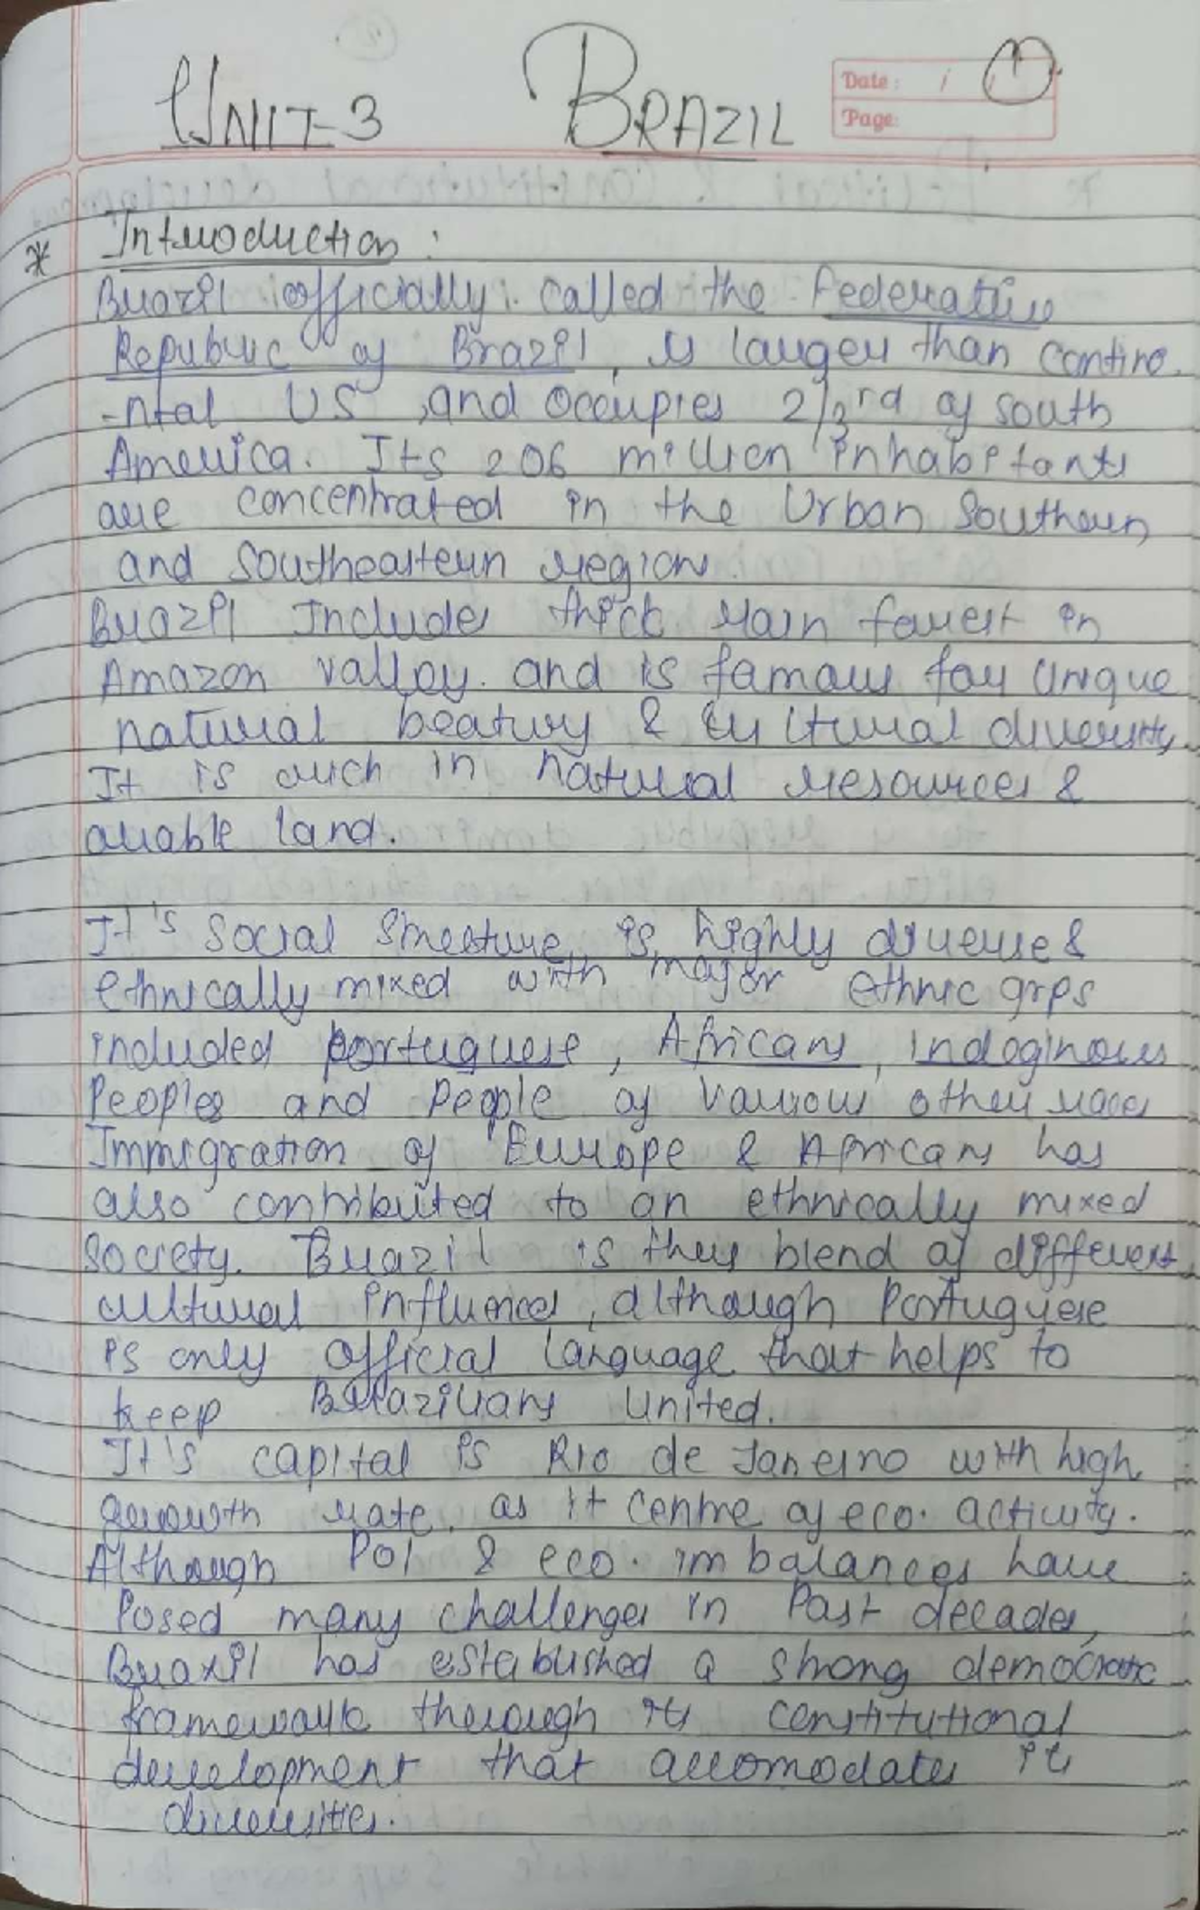 UNIT-3 BRAZIL
Date: 1
Page:
* Introduction:
Brazil officially called the Federative
Republic of Brazil, is larger than contine
-ntal US, and occupies 2/3rd of south
America. Its 206 million inhabitants
are concentrated in the Urban Southern
and Southeastern regions.
Brazil Includes thick rain forest in
Amazon valley and is famous for Unique
natural beatury & cultural diversity
It is rich in natural resources &
arable land.
It's Social Structure is highly diverse &
ethnically mixed with major ethnic grps
included portuguese, Africans, indoginous
Peoples and people of various other races
Immigration of Europe & Africans has
also contributed to an ethnically mixed
Society. Brazil is thus blend of different
cultural influences, although Portuguese
is only official language that helps to
keep Brazilians United.
It's capital is Rio de Janeiro with high
growth rate, as it centre of eco. activity.
Although Pol & eco. imbalances have
Posed many challenges in Past decades,
Brazil has established a strong democratic
framework through its constitutional
development that accomodates its
diversities.